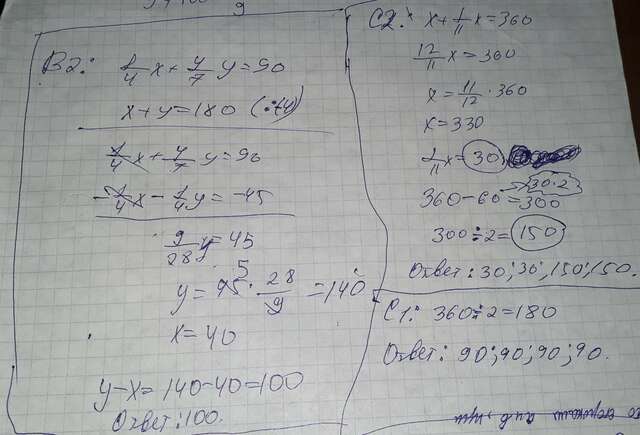 B2: 1/4x + 4/7y = 90
x + y = 180 (:(-4))
1/4x + 4/7y = 90
-1/4x - 1/4y = -45
9/28y = 45
5
y = 45 · 28/9 = 140
x = 40
y - x = 140 - 40 = 100
Ответ: 100.
C2: x + 1/11x = 360
12/11x = 360
x = 11/12 · 360
x = 330
1/11x = 30
30·2
360 - 60 = 300
300 ÷ 2 = 150
Ответ: 30; 30; 150; 150.
C1: 360 ÷ 2 = 180
Ответ: 90; 90; 90; 90.